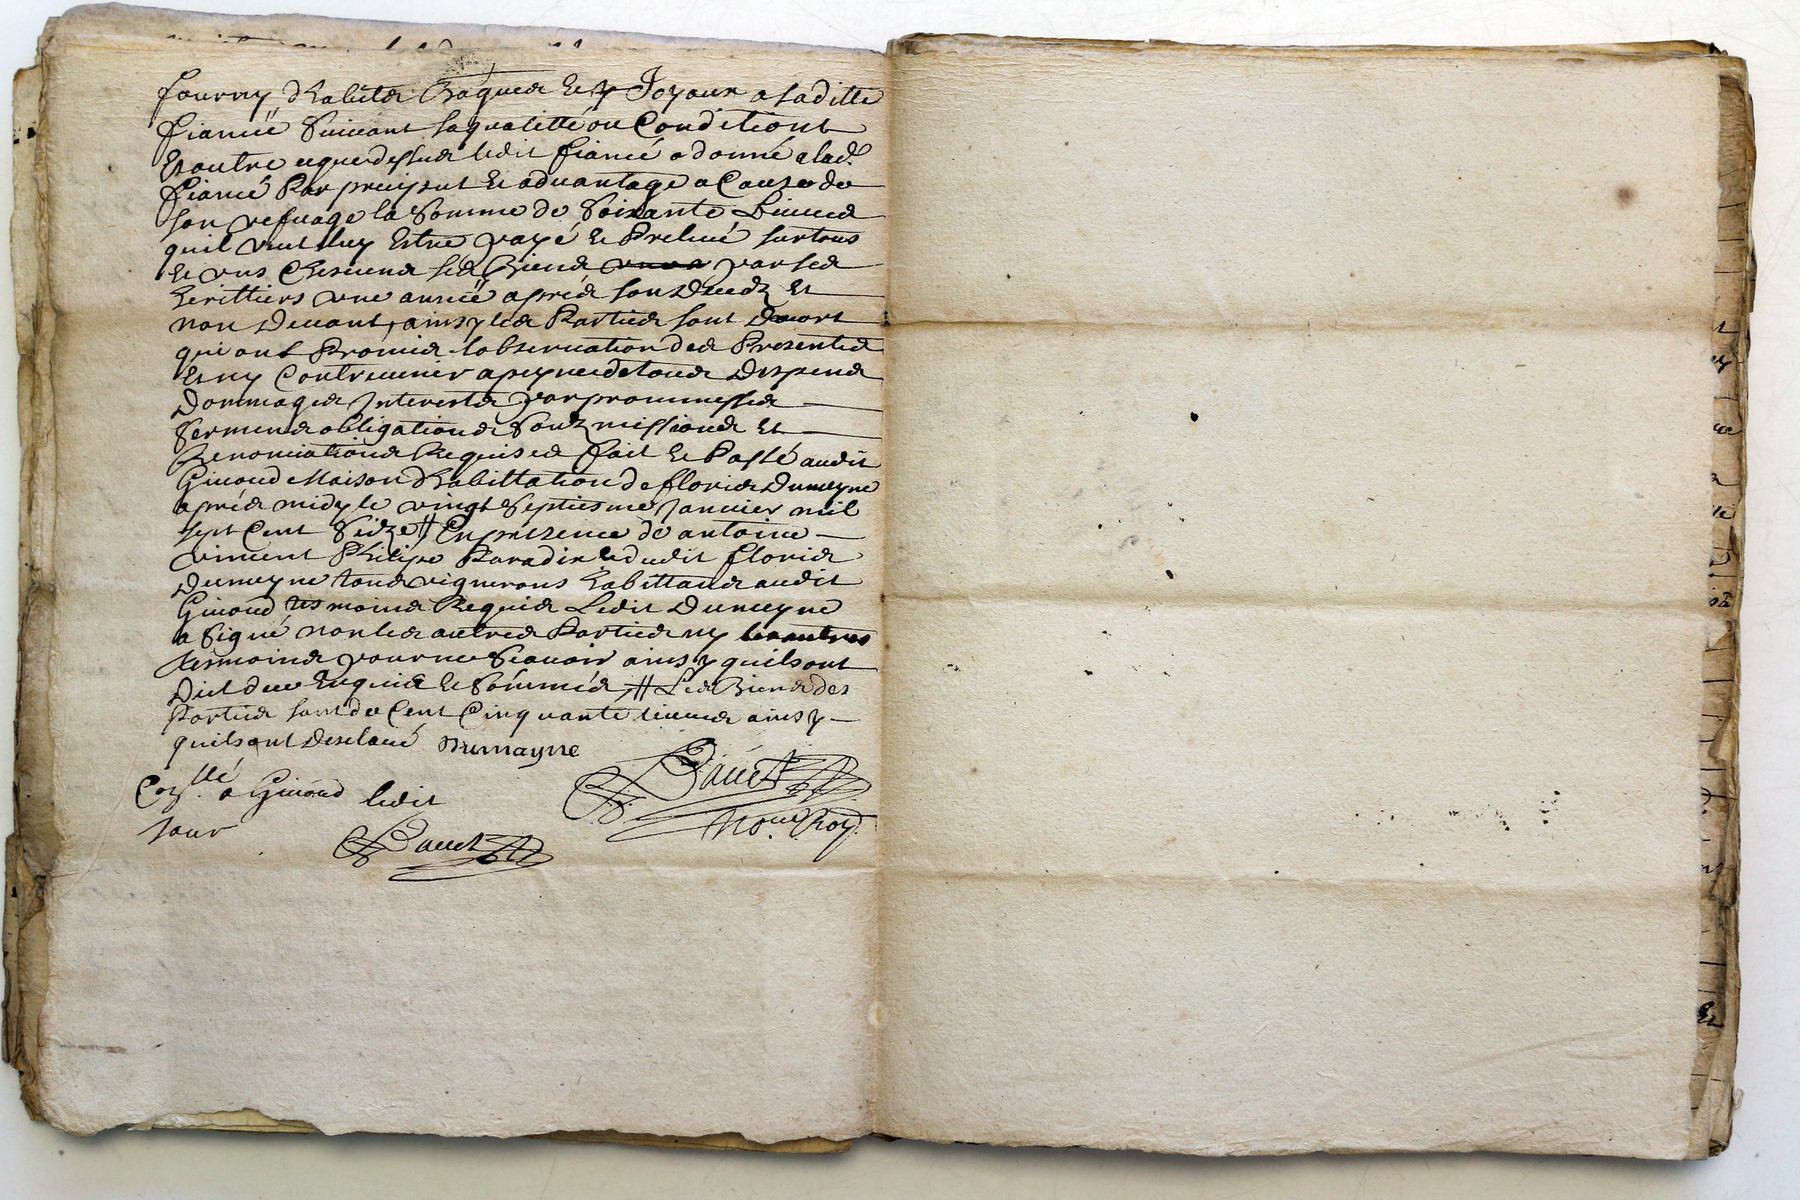 fourny d'habits Bagues et Joyaux a saditte
fiancéé Suivant sa qualitté ou Conditiont
Et outre ce que dessus ledit fiancé a donné a lad.
fiancé Par preciput et advantage a Cause de
son vefvage la Somme de Soixante Livres
quil veut luy Estre payé et Prelevé sur tous
et vns Chescuns ses Biens par ses
heritties vne annéé aprés son Decedz Et
non Devant, ainsy les Parties sont Dacort
qui ont Promis lobservation des Presentes
Et ny Contrevenir a peyne de tous Despens
Dommages Interests par prommesses
Serments obligations Soubzmissions Et
Renonciations Requises fait et Passé audit
Givord Maison d'habittation de floris Dumeyne
aprés midy le vingt Septiesme Janvier mil
sept Cent Seize // En presence de antoine
vincent Philipe Paradis et dudit floris
Dumeyne tous vignerons habittans audit
Givord tesmoins Requis Ledit Dumeyne
a Signé non les autres Parties ny les autres
tesmoins pour ne Scavoir ainsy quils ont
Dict de ce Enquis et Sommés, // Les Biens des
Parties sont de Cent Cinquante livres ainsy
quils ont Desclaré Dumayne
a Givord ledit
Jour
No. Roy.